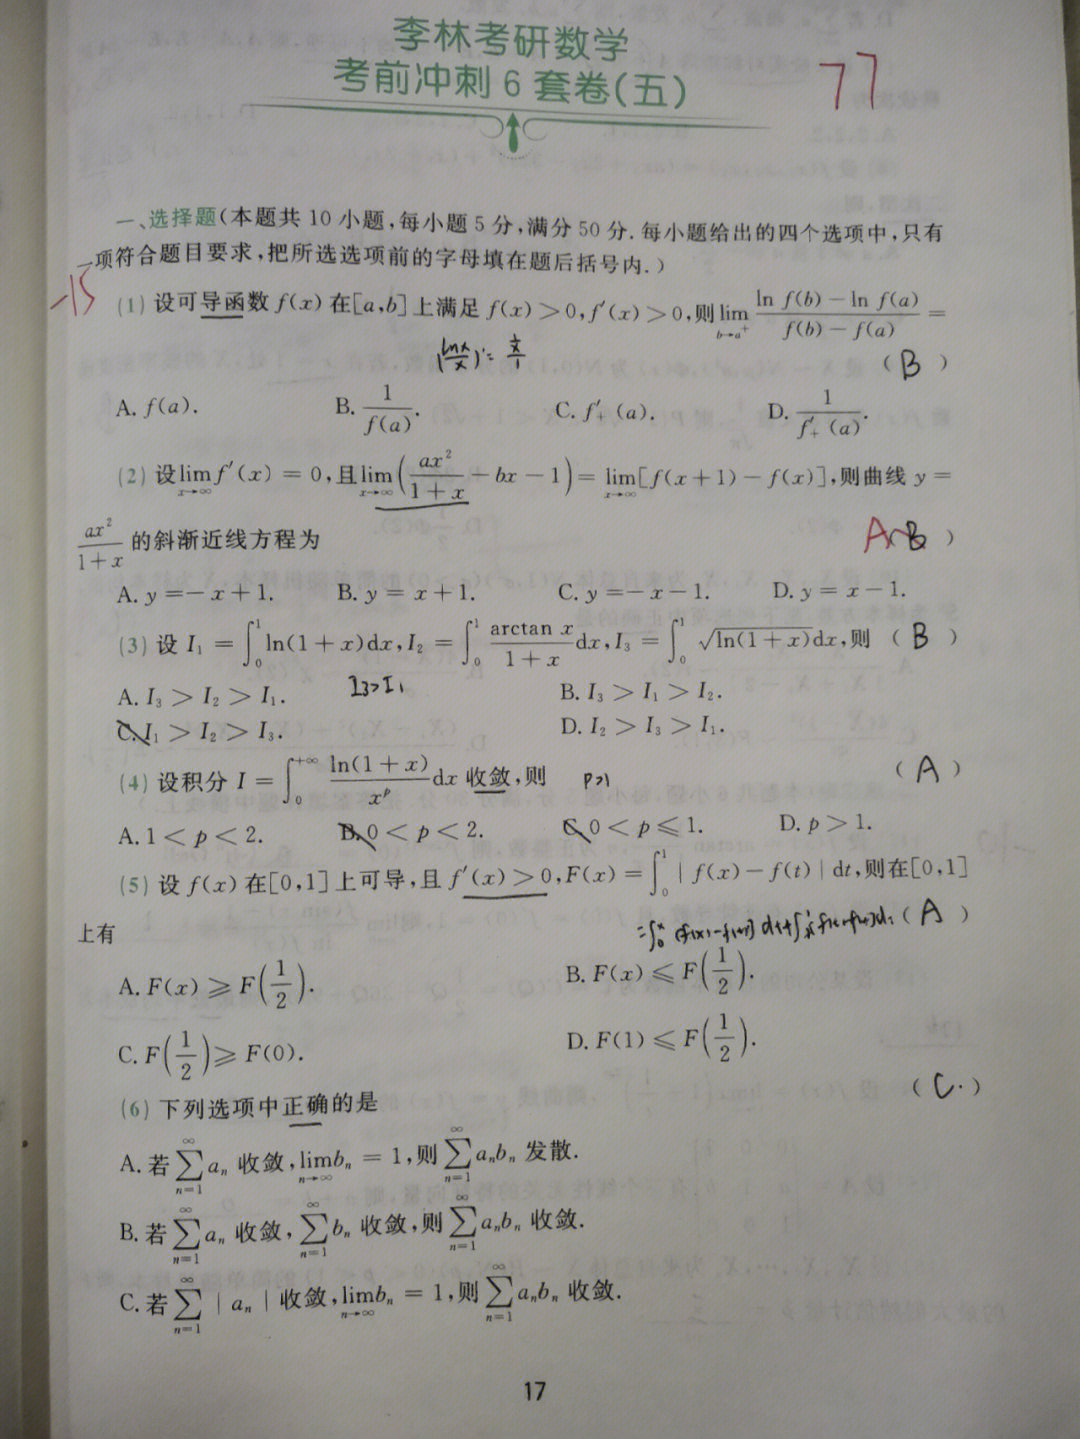 李林考研数学
考前冲刺6套卷(五)
77
一、选择题(本题共10小题,每小题5分,满分50分.每小题给出的四个选项中,只有
一项符合题目要求,把所选选项前的字母填在题后括号内.)
-15
(1) 设可导函数 f(x) 在[a,b]上满足 f(x)>0,f′(x)>0,则 lim_{b→a⁺} (ln f(b) − ln f(a))/(f(b) − f(a)) =
( B )
A. f(a). B. 1/f(a). C. f′₊(a). D. 1/f′₊(a).
(2) 设 lim_{x→∞} f′(x) = 0,且 lim_{x→∞} (ax²/(1+x) − bx − 1) = lim_{x→∞} [f(x+1) − f(x)],则曲线 y =
ax²/(1+x) 的斜渐近线方程为 A ( B )
A. y = −x+1. B. y = x+1. C. y = −x−1. D. y = x−1.
(3) 设 I₁ = ∫₀¹ ln(1+x)dx, I₂ = ∫₀¹ arctan x/(1+x) dx, I₃ = ∫₀¹ √ln(1+x) dx,则 ( B )
A. I₃ > I₂ > I₁. I₃>I₁ B. I₃ > I₁ > I₂.
C. I₁ > I₂ > I₃. D. I₂ > I₃ > I₁.
(4) 设积分 I = ∫₀^{+∞} ln(1+x)/x^p dx 收敛,则 p>1 ( A )
A. 1 < p < 2. B. 0 < p < 2. C. 0 < p ⩽ 1. D. p > 1.
(5) 设 f(x) 在[0,1]上可导,且 f′(x) > 0, F(x) = ∫₀¹ | f(x) − f(t) | dt,则在[0,1]
上有 ( A )
A. F(x) ⩾ F(1/2). B. F(x) ⩽ F(1/2).
C. F(1/2) ⩾ F(0). D. F(1) ⩽ F(1/2).
(6) 下列选项中正确的是 ( C. )
A. 若 ∑_{n=1}^{∞} aₙ 收敛, lim_{n→∞} bₙ = 1,则 ∑_{n=1}^{∞} aₙbₙ 发散.
B. 若 ∑_{n=1}^{∞} aₙ 收敛, ∑_{n=1}^{∞} bₙ 收敛,则 ∑_{n=1}^{∞} aₙbₙ 收敛.
C. 若 ∑_{n=1}^{∞} | aₙ | 收敛, lim_{n→∞} bₙ = 1,则 ∑_{n=1}^{∞} aₙbₙ 收敛.
17